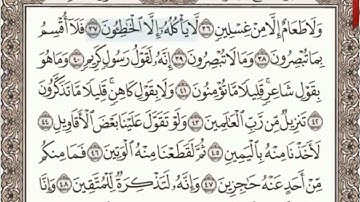 وَلَا طَعَامٌ إِلَّا مِنْ غِسْلِينٍ ٣٦ لَّا يَأْكُلُهُۥٓ إِلَّا ٱلْخَٰطِـُٔونَ ٣٧ فَلَآ أُقْسِمُ
بِمَا تُبْصِرُونَ ٣٨ وَمَا لَا تُبْصِرُونَ ٣٩ إِنَّهُۥ لَقَوْلُ رَسُولٍ كَرِيمٍ ٤٠ وَمَا هُوَ
بِقَوْلِ شَاعِرٍ ۚ قَلِيلًا مَّا تُؤْمِنُونَ ٤١ وَلَا بِقَوْلِ كَاهِنٍ ۚ قَلِيلًا مَّا تَذَكَّرُونَ
٤٢ تَنزِيلٌ مِّن رَّبِّ ٱلْعَٰلَمِينَ ٤٣ وَلَوْ تَقَوَّلَ عَلَيْنَا بَعْضَ ٱلْأَقَاوِيلِ ٤٤
لَأَخَذْنَا مِنْهُ بِٱلْيَمِينِ ٤٥ ثُمَّ لَقَطَعْنَا مِنْهُ ٱلْوَتِينَ ٤٦ فَمَا مِنكُم
مِّنْ أَحَدٍ عَنْهُ حَٰجِزِينَ ٤٧ وَإِنَّهُۥ لَتَذْكِرَةٌ لِّلْمُتَّقِينَ ٤٨ وَإِنَّا